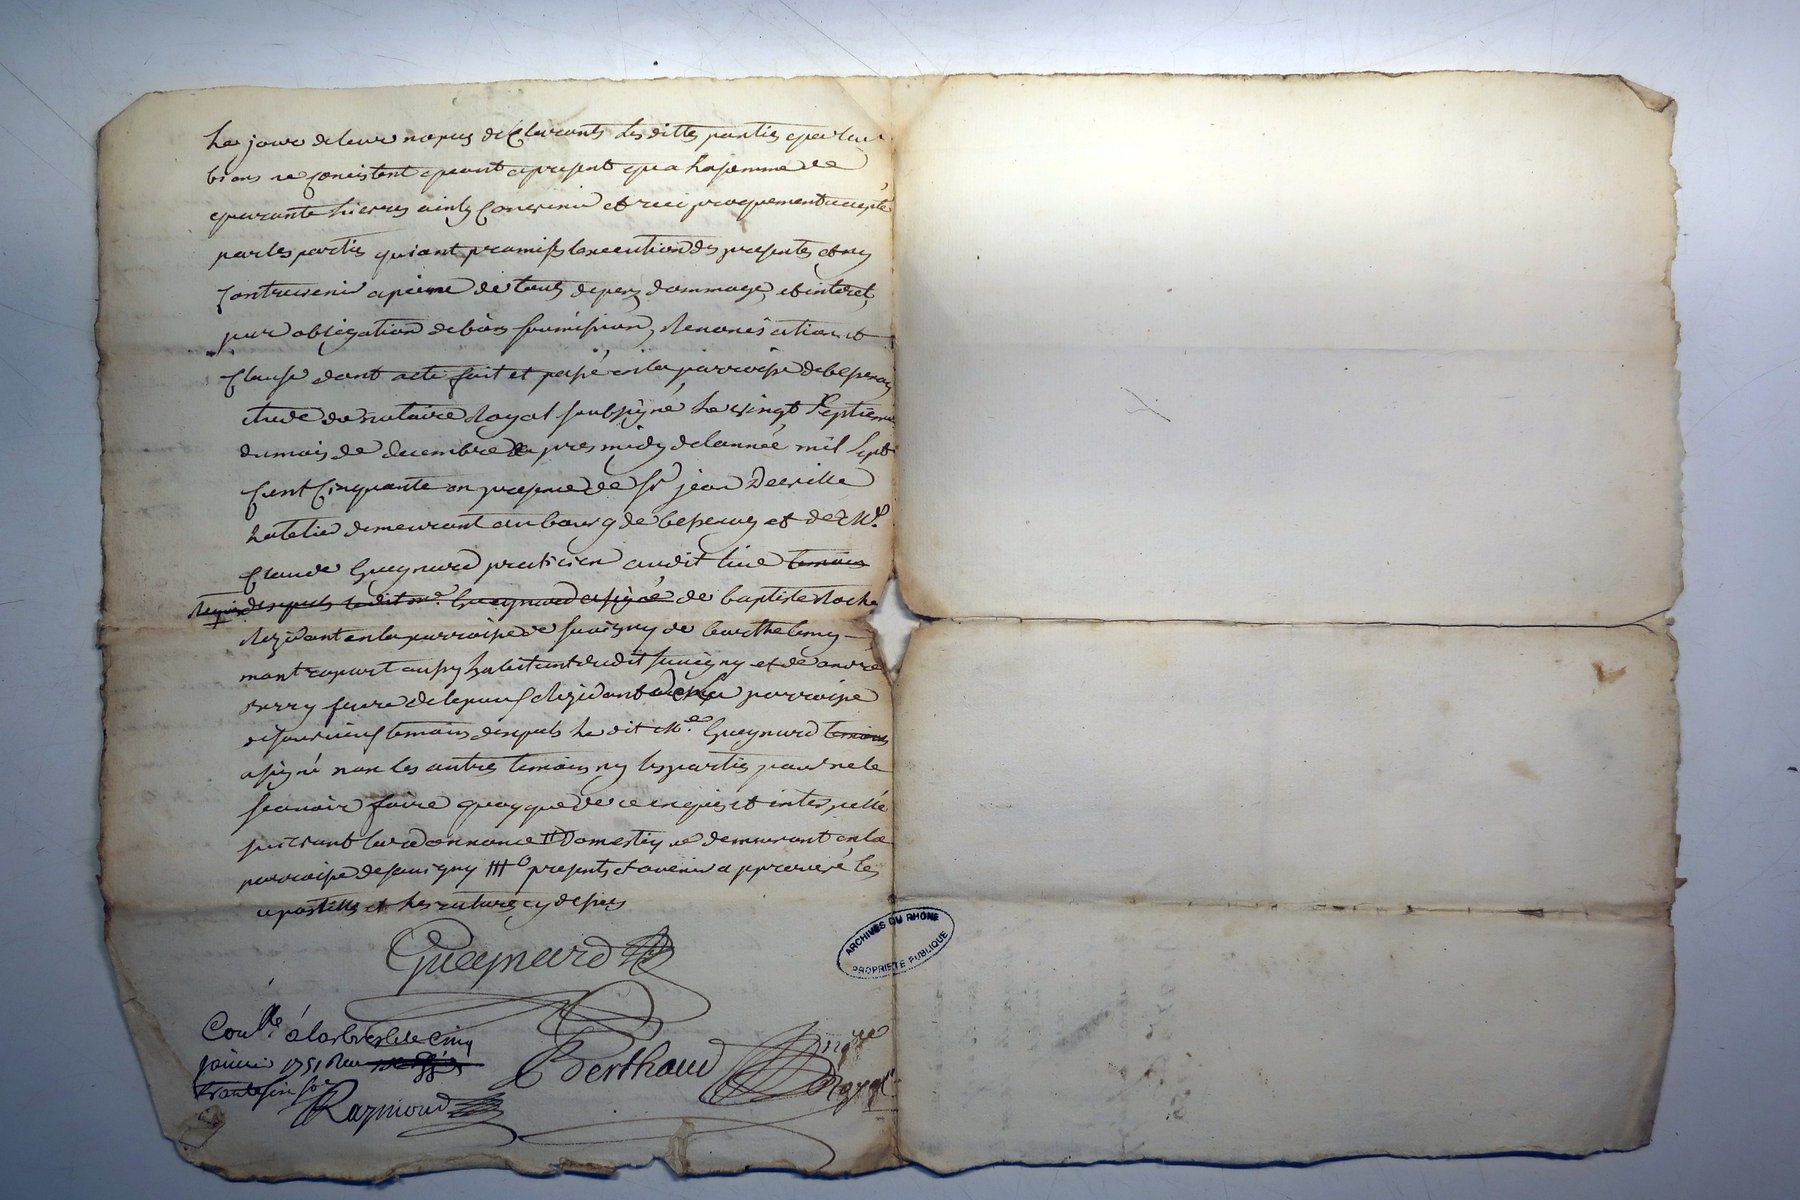 Le jour de leur nopces declarants les dittes parties que leur
biens ne consistent quant apresent qua la somme de
quarante livres ainsy convenu et reciproquement accepté
par les parties qui ont promis lexecution des presentes et ny
contrevenir a peine de tous depens dommages et interet
par obligation de biens soumissions renonciation et
clause dont acte fait et passé en la parroisse de bessenay
etude du notaire royal soubsigné le vingt septieme
du mois de decembre apres midy de lannée mil sept
cent cinquante en presence de Sr jean Deville
hatelier demeurant au bourg de bessenay et de Me
Claude Gueynard praticien audit lieu temoins
requis desquels ledit me Gueynard a signé de baptiste Roche
rezidant en la parroisse de savigny de barthelemy
aussy habitant dudit savigny et de andré
rezidant parroisse
temoins desquels le dit Me Gueynard temoins
a signé non les autres temoins ny les parties pour ne le
scavoir faire quoyque de ce enquis et interpellé
suivant lordonnance II Domestique demeurant en la
parroisse de savigny III presents et avenir approuvé les
apostilles et les rature cy dessus
Gueynard
Conllé à larbresle le cinq
janvier 1751 Reçu
trente six
Raymond
Berthaud
Nore
Royal
ARCHIVES DU RHÔNE
PROPRIÉTÉ PUBLIQUE